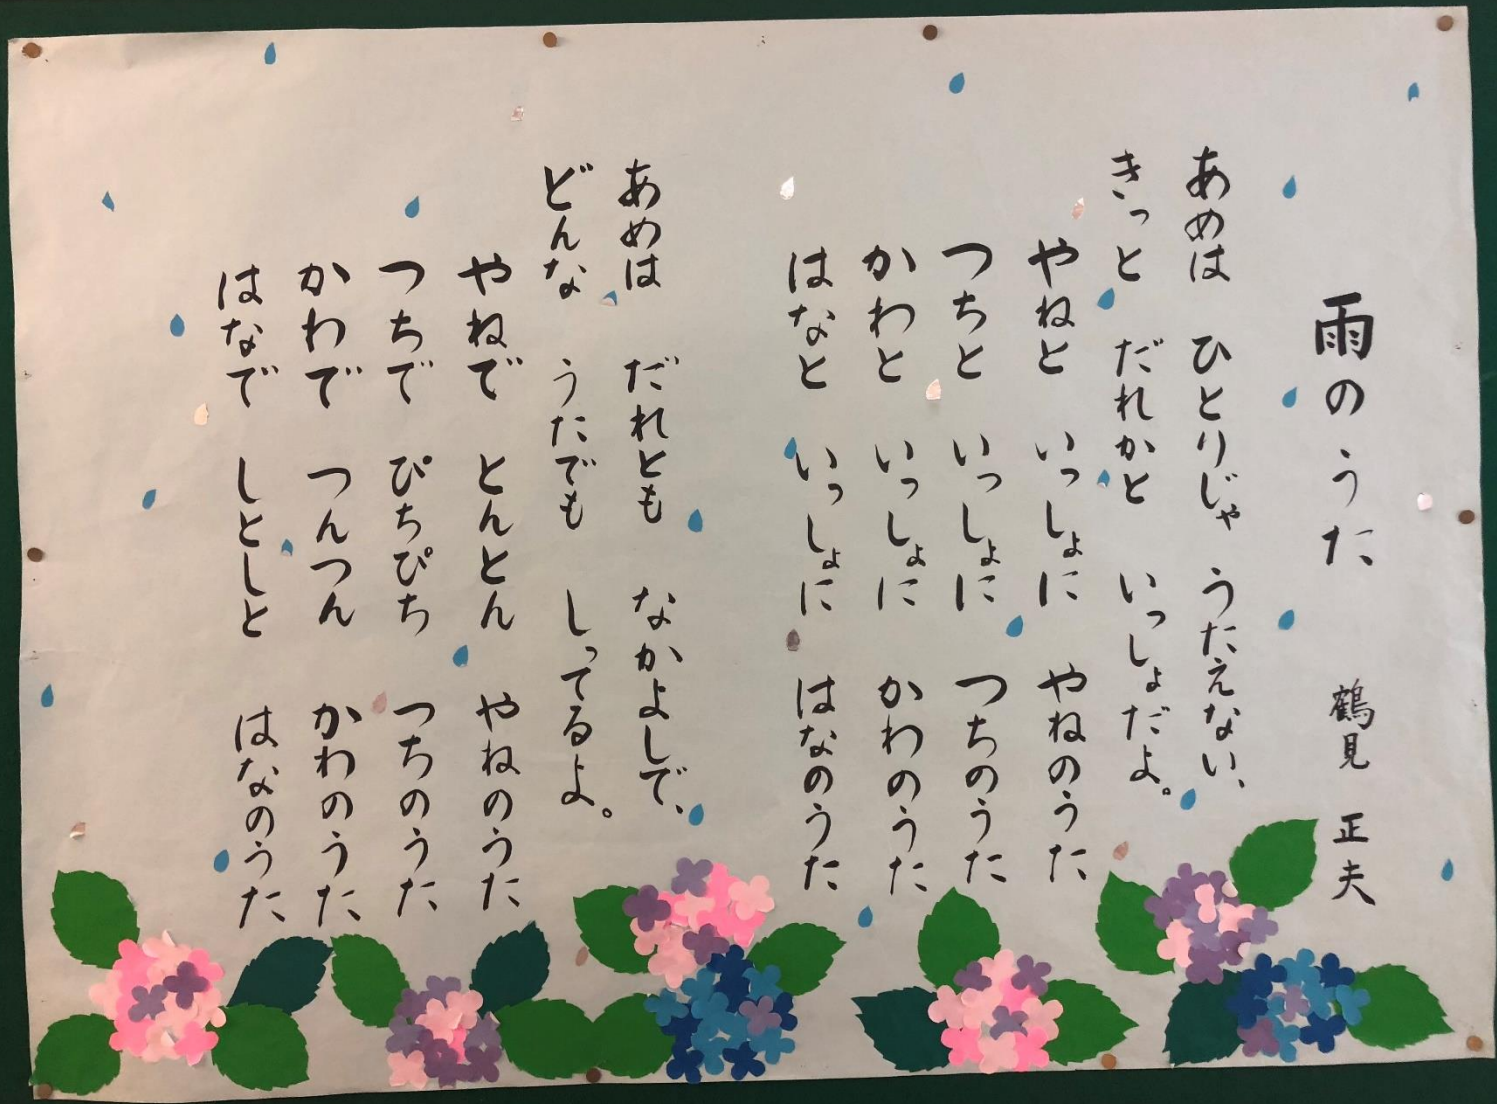 雨のうた　鶴見　正夫
あめは　ひとりじゃ　うたえない、
きっと　だれかと　いっしょだよ。
やねと　いっしょに　やねのうた
つちと　いっしょに　つちのうた
かわと　いっしょに　かわのうた
はなと　いっしょに　はなのうた
あめは　だれとも　なかよしで、
どんな　うたでも　しってるよ。
やねで　とんとん　やねのうた
つちで　ぴちぴち　つちのうた
かわで　つんつん　かわのうた
はなで　しとしと　はなのうた